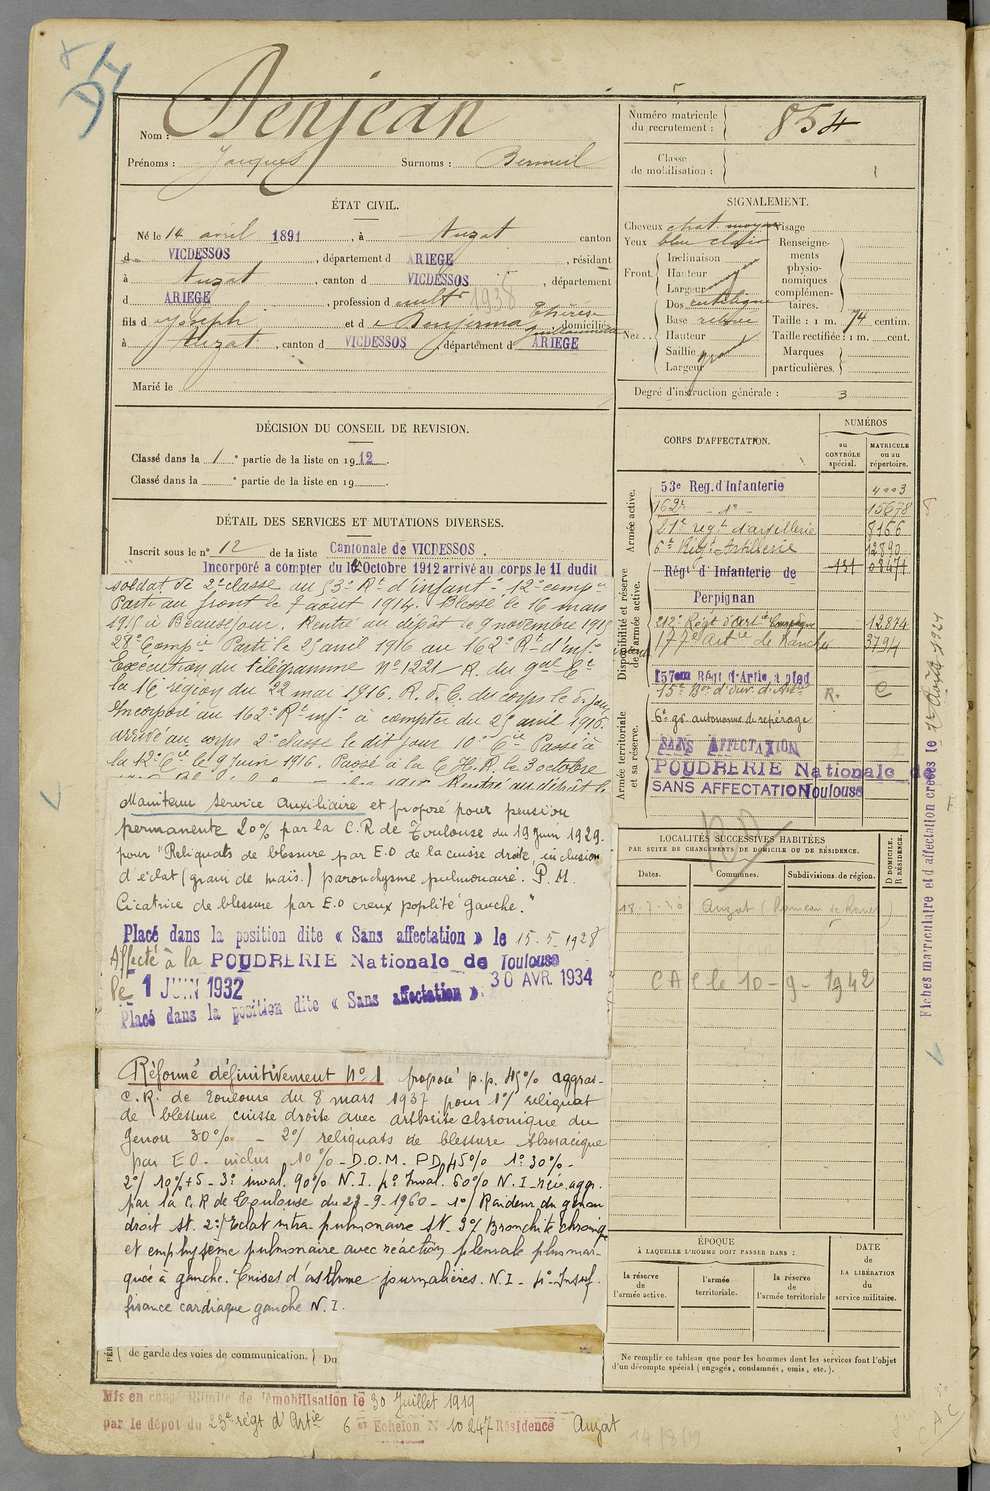 Nom : Denjean
Prénoms : Jacques Surnoms : Bermeil
Numéro matricule du recrutement : 854
Classe de mobilisation :
ÉTAT CIVIL.
Né le 14 avril 1891, à Auzat canton
d VICDESSOS, département d ARIEGE, résidant
à Auzat, canton d VICDESSOS, département
d ARIEGE, profession d cultr 1938
fils d Joseph et d Benjemna Thérèse Guillaumette domiciliés
à Auzat, canton d VICDESSOS, département d ARIEGE
Marié le
SIGNALEMENT.
Cheveux chat. moyen Visage
Yeux bleu clair Renseignements physionomiques complémentaires.
Front. Inclinaison
Hauteur moyen
Largeur
Nez.. Dos rectiligne
Base relevée
Hauteur
Saillie grand
Largeur
Taille : 1 m. 74 centim.
Taille rectifiée : 1 m. cent.
Marques particulières.
Degré d'instruction générale : 3
DÉCISION DU CONSEIL DE REVISION.
Classé dans la 1e partie de la liste en 1912.
Classé dans la e partie de la liste en 19
DÉTAIL DES SERVICES ET MUTATIONS DIVERSES.
Inscrit sous le n° 12 de la liste Cantonale de VICDESSOS.
Incorporé a compter du 10 Octobre 1912 arrivé au corps le 11 dudit
soldat de 2e classe au 53e Rt d'infantie 12e compie
Parti au front le 7 août 1914. Blessé le 16 mars
1915 à Beauséjour. Rentré au dépôt le 9 novembre 1915
28e Compie Parti le 25 avril 1916 au 162e Rt d'infie
Exécution du télégramme N° 1221 R. du gal Ct
la 16e région du 22 mai 1916. R. d. C. du corps le d. jour
Incorporé au 162e Rt infie à compter du 25 avril 1916.
arrivé au corps 2e classe le dit jour 10e Cie Passé à
la 12e Cie le 9 juin 1916. Passé à la C.H.R. le 3 octobre
Rentré au dépôt le
Maintenu service auxiliaire et proposé pour pension
permanente 20% par la C.R de Toulouse du 19 Juin 1929.
pour "Reliquats de blessure par E.O de la cuisse droite, inclusion
d'éclat (grain de maïs.) paronchysme pulmonaire. P.M.
Cicatrice de blessure par E.O creux poplité gauche."
Placé dans la position dite « Sans affectation » le 15.5.1928
Affecté à la POUDRERIE Nationale de Toulouse
le 1 JUIN 1932
30 AVR. 1934
Placé dans la position dite « Sans affectation ».
Réformé définitivement N° 1 proposé p.p. 45% aggrav-
C.R. de Toulouse du 8 mars 1937 pour 1°/ reliquat
de blessure cuisse droite avec arthrite chronique du
genou 30% - 2°/ reliquats de blessure thoracique
par E.O. inclus 10% - D.O.M. P.D. 45% 1° 30% -
2°/ 10%+5 - 3° inval. 90% N.I. 4° Inval. 60% N.I - réc. aggr.
par la C.R de Toulouse du 28-9-1960 - 1°/ Raideur du genou
droit st. 2°/ Eclat intra-pulmonaire st. 3°/ Bronchite chronique
et emphysème pulmonaire avec réaction pleurale plus mar-
quée à gauche. Crises d'asthme journalières. N.I - 4° Insuf.
fisance cardiaque gauche N.I.
de garde des voies de communication. Du
Mis en congé illimité de démobilisation le 30 Juillet 1919
par le dépot du 23e régt d'Artie 6 e Echelon N° 10247 Résidence Auzat
14/8/19
CORPS D'AFFECTATION.
NUMÉROS
au CONTRÔLE spécial.
MATRICULE ou au répertoire.
Armée active.
53e Reg. d'Infanterie 4003
162e - d° - 15678
21e régt d'artillerie 8166
6e Régt Artillerie 12890
Disponibilité et réserve de l'armée active.
Régt d'Infanterie de Perpignan 131 03471
212e Régt d'Artie 12874
177e artie de tranchée 3794
157em Régt d'Artie à pied
15e Bon d'ouv. d'Artie R. C
6e gr. autonome de repérage
Armée territoriale et sa réserve.
SANS AFFECTATION
POUDRERIE Nationale de Toulouse
SANS AFFECTATION
Fiches matriculaire et d'affectation créées le 1er Août 1924
LOCALITÉS SUCCESSIVES HABITÉES
PAR SUITE DE CHANGEMENTS DE DOMICILE OU DE RÉSIDENCE.
Dates. Communes. Subdivisions de région. D DOMICILE. R RÉSIDENCE.
Auzat
CAC le 10-9-1942
ÉPOQUE
À LAQUELLE L'HOMME DOIT PASSER DANS :
la réserve de l'armée active.
l'armée territoriale.
la réserve de l'armée territoriale
DATE de LA LIBÉRATION du service militaire.
Ne remplir ce tableau que pour les hommes dont les services font l'objet
d'un décompte spécial (engagés, condamnés, omis, etc.).